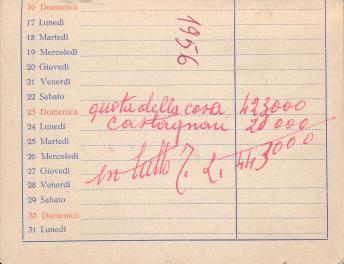 16 Domenica
17 Lunedì
18 Martedì
19 Mercoledì
20 Giovedì
21 Venerdì
22 Sabato
23 Domenica
24 Lunedì
25 Martedì
26 Mercoledì
27 Giovedì
28 Venerdì
29 Sabato
30 Domenica
31 Lunedì
1956
quota della casa 423000
Castagnari 20 000
in tutto L. 443000